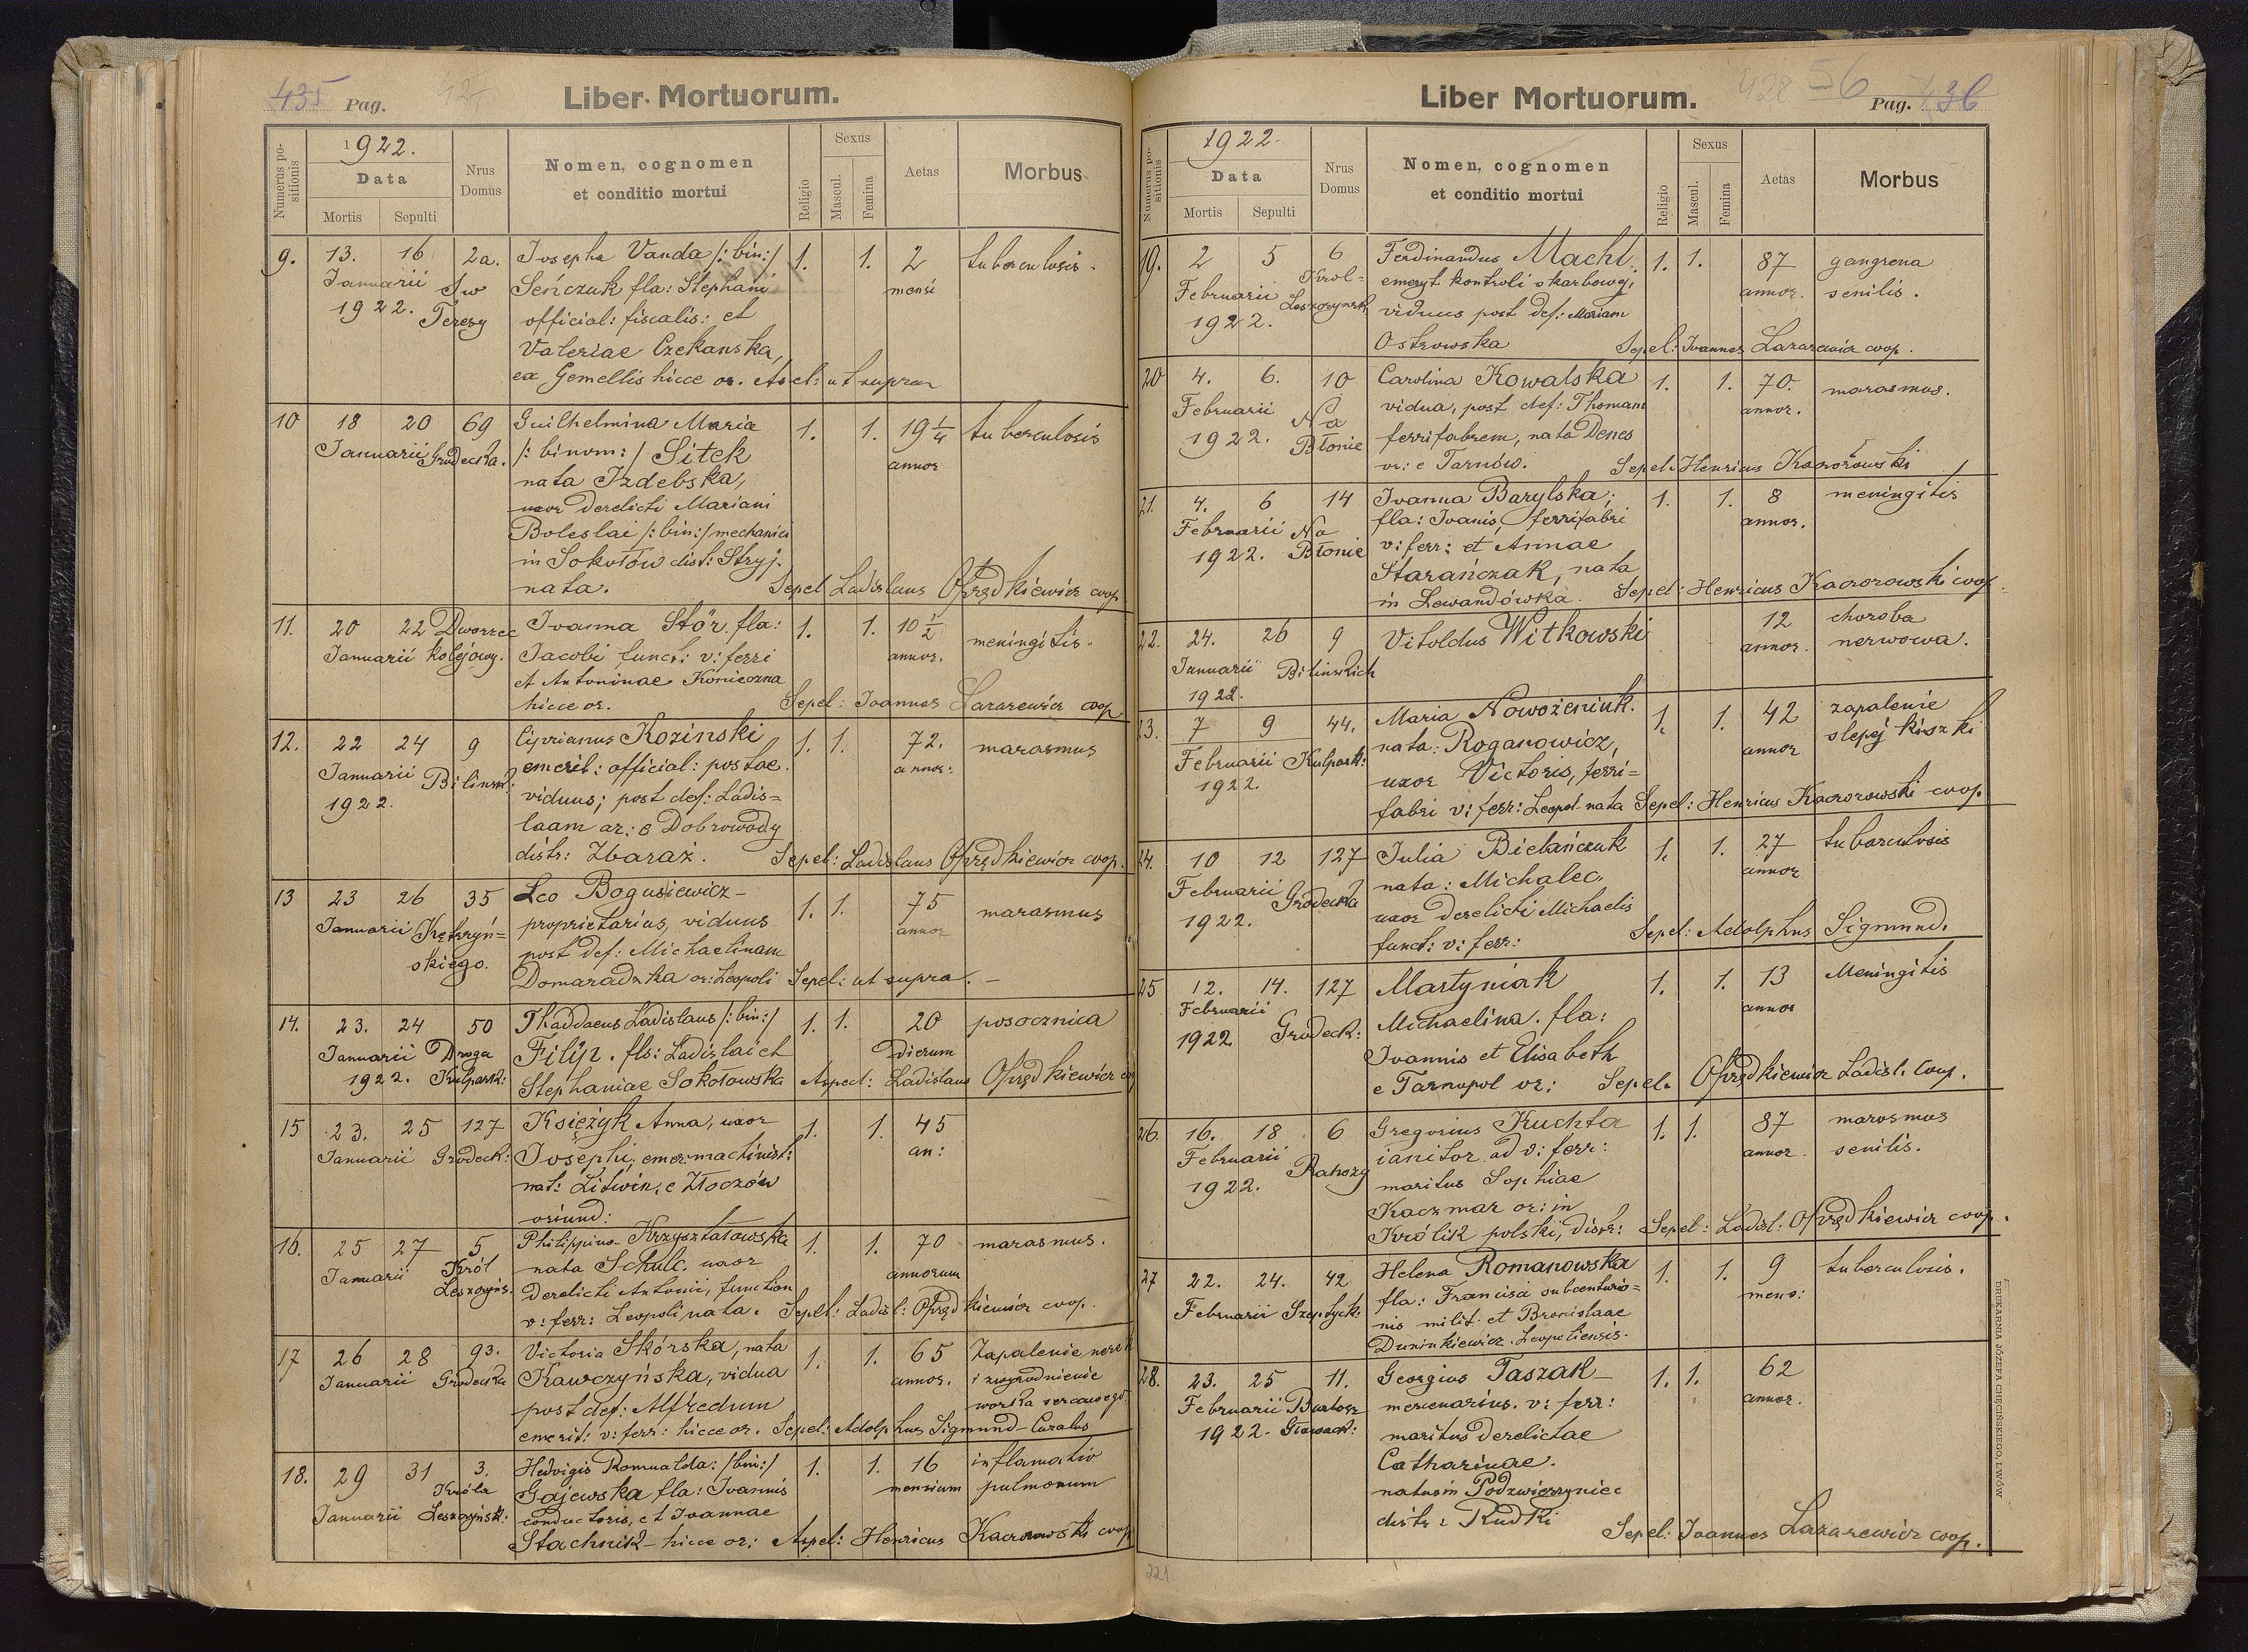 435 Pag. 427
Liber Mortuorum.
Numerus positionis
1922.
Data
Mortis Sepulti
Nrus Domus
Nomen, cognomen
et conditio mortui
Religio
Sexus
Mascul.
Femina
Aetas
Morbus
9. 13. 16 2a. Josepha Vanda /: bin:/ 1. 1. 2 tuberculosis.
Januarii Św Seńczuk fla: Stephani mensi
1922. Teresy official: fiscalis: et
Valeriae Czekanska,
ex Gemellis hicce or. Aspel: ut supra
10 18 20 69 Guilhelmina Maria 1. 1. 19 1/4 tuberculosis
Januarii Grodecka. /: binom:/ Sitek annor
nata Izdebska,
uxor derelicti Mariani
Boleslai /: bin:/ mechanici
in Sokołów dist: Stryj.
nata. Sepel Ladislaus Oprzędkiewicz coop
11. 20 22 Dworzec Ivanna Stör. fla: 1. 1. 10 1/2 meningitis.
Januarii kolejowy. Jacobi funct: v: ferri annor.
et Antoninae Konieczna
hicce or. Sepel: Joannes Lazarewicz coop
12. 22 24 9 Ciprianus Kozinski 1. 1. 72. marasmus
Januarii Bilinsk: emerit: official: postae. annor:
1922. viduus; post def: Ladis=
laam or: e Dobrowody
distr: Zbaraż. Sepel: Ladislaus Oprzędkiewicz coop.
13 23 26 35 Leo Bogusiewicz 1. 1. 75 marasmus
Januarii Kętrzyń= proprietarius, viduus annor
skiego. post def: Michaelinam
Domaradzka or: Leopoli Sepel: ut supra. —
14. 23. 24 50 Thaddaeus Ladislaus /: bin:/ 1. 1. 20 posocznica
Januarii Droga Filip. fls: Ladislai et dierum
1922. Kulpark: Stephaniae Sokołowska Aspect: Ladislaus Oprzędkiewicz
15 23. 25 127 Księżyk Anna, uxor 1. 1. 45
Januarii Grodeck: Josephi, emer: machinist: an:
nat: Litwin, e Złoczów
oriund:
16. 25 27 5 Philippina Krzyształowska 1. 1. 70 marasmus.
Januarii Król nata Schulc. uxor annorum
Leszczyńs. derelicti Antonii, function
v: ferr: Leopoli nata. Sepel: Ladisl: Oprzędkiewicz coop.
17 26 28 93. Victoria Skórska, nata 1. 1. 65 Zapalenie nerek
Januarii Grodecka Kawczyńska, vidua annor. i zwyrodnienie
post def: Alfredum worka sercowego.
emerit: v: ferr: hicce or. Sepel: Adolphus Sigmund - Curatus
18. 29 31 3. Hedvigis Romualda: /bin:/ 1. 1. 16 inflamatio
Januarii Króla Gajewska fla: Ivannis mensium pulmonum
Leszczyńsk: conductoris, et Ivannae
Stachnik - hicce or: Aspel: Henricus Kaczorowski coop
Liber Mortuorum.
428 56 Pag. 436
Numerus positionis
1922.
Data
Mortis Sepulti
Nrus Domus
Nomen, cognomen
et conditio mortui
Religio
Sexus
Mascul.
Femina
Aetas
Morbus
19. 2 5 6 Ferdinandus Macht. 1. 1. 87 gangrena
Februarii Król= emeryt kontroli skarbowej, annor. senilis.
1922. Leszczynsk viduus post def: Mariam
Ostrowska Sepel: Ivannes Lazarewicz coop.
20 4. 6. 10 Carolina Kowalska 1. 1. 70. marasmus.
Februarii Na vidua, post def: Thomam annor.
1922. Błonie ferrifabrem, nata Denes
or: e Tarnów. Sepel: Henricus Kaczorowski
21. 4. 6 14 Ivanna Barylska; 1. 1. 8 meningitis
Februarii Na fla: Ivanis, ferrifabri annor.
1922. Błonie v: ferr: et Annae
Starańczak, nata
in Lewandówka. Sepel: Henricus Kaczorowski coop.
22. 24. 26 9 Vitoldus Witkowski 12 choroba
Januarii Bilinskich annor. nerwowa.
1922.
23. 7 9 44. Maria Nowożeniuk. 1. 1. 42 zapalenie
Februarii Kulpark: nata: Roganowicz, annor slepej kiszki
1922. uxor Victoris, ferri=
fabri v: ferr: Leopol. nata Sepel: Henricus Kaczorowski coop.
24. 10 12 127 Julia Bielańczuk 1. 1. 27 tuberculosis
Februarii Grodecka nata: Michalec. annor
1922. uxor derelicti Michaelis
funct: v: ferr: Sepel: Adolphus Sigmund.
25 12. 14. 127 Martyniak 1. 1. 13 Meningitis
Februarii Grodeck: Michaelina. fla: annor
1922 Ivannis et Elisabeth
e Tarnopol or: Sepel. Oprzędkiewicz Ladisl. Coop.
26. 16. 18 6 Gregorius Kuchta 1. 1. 87 marasmus
Februarii Rahozy ianitor ad v: ferr: annor. senilis.
1922. maritus Sophiae
Kaczmar or: in
Królik polski, distr: Sepel: Ladisl: Oprzędkiewicz coop.
27 22. 24. 42 Helena Romanowska 1. 1. 9 tuberculosis.
Februarii Szeptyck: fla: Francisci subcenturio= mens:
nis milit. et Bronislaae
Duninkiewicz. Leopoliensis.
28. 23. 25 11. Georgius Taszak 1. 1. 62
Februarii Bartosz mercenarius. v: ferr: annor.
1922. Głowack: maritus derelictae
Catharinae.
natus in Podzwierzyniec
distr: Rudki
Sepel: Joannes Lazarewicz coop.
221
DRUKARNIA JÓZEFA CHĘCIŃSKIEGO, LWÓW